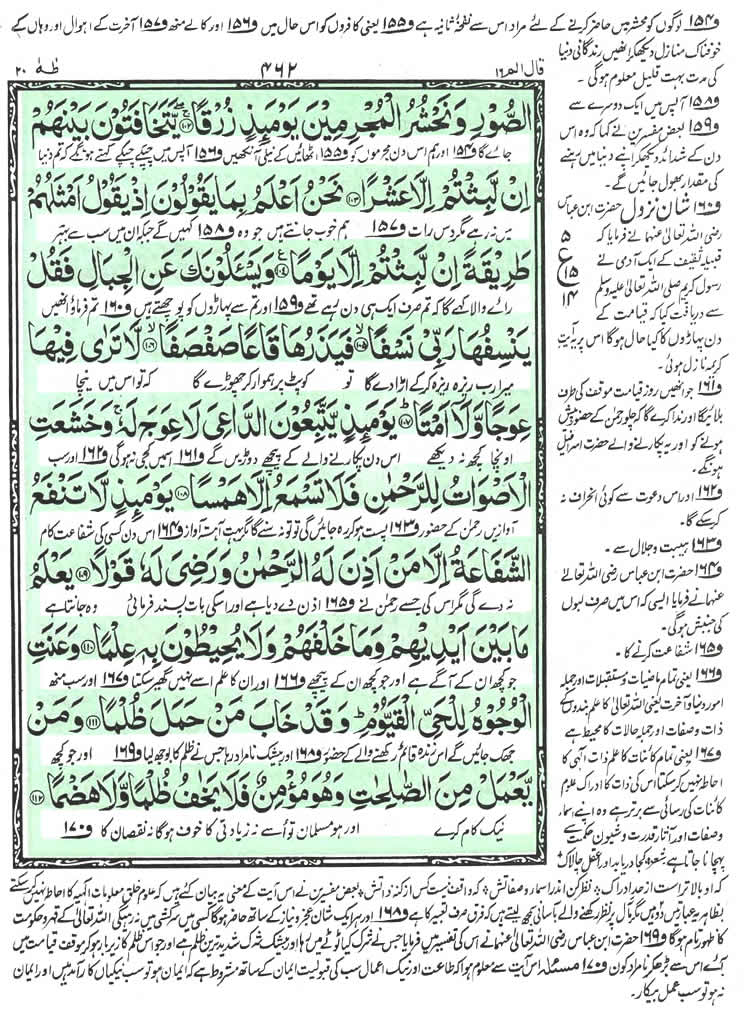 و۱۵۴ لوگوں کو محشر میں حاضر کرنے کے لئے مراد اس سے نفخۂ ثانیہ ہے و۱۵۵ یعنی کافروں کو اس حال میں و۱۵۶ اور کالے منھ و۱۵۷ آخرت کے اہوال اور وہاں کے
خوفناک منازل دیکھ کر انھیں زندگانی دنیا
کی مدت بہت قلیل معلوم ہوگی ۔
قال الم ۱۶
۴۶۲
طٰہٰ ۲۰
الصُّوْرِ وَنَحْشُرُ الْمُجْرِمِيْنَ يَوْمَئِذٍ زُرْقًا ۱۰۲ يَّتَخَافَتُوْنَ بَيْنَهُمْ
جائے گا و۱۵۴ اور ہم اس دن مجرموں کو و۱۵۵ اٹھائیں گے نیلی آنکھیں و۱۵۶ آپس میں چپکے چپکے کہتے ہونگے کہ تم دنیا
اِنْ لَّبِثْتُمْ اِلَّا عَشْرًا ۱۰۳ نَحْنُ اَعْلَمُ بِمَا يَقُوْلُوْنَ اِذْ يَقُوْلُ اَمْثَلُهُمْ
میں نہ رہے مگر دس رات و۱۵۷ ہم خوب جانتے ہیں جو وہ و۱۵۸ کہیں گے جبکہ ان میں سب سے بہتر
طَرِيْقَةً اِنْ لَّبِثْتُمْ اِلَّا يَوْمًا ۱۰۴ وَيَسْـَٔلُوْنَكَ عَنِ الْجِبَالِ فَقُلْ
رائے والا کہے گا کہ تم صرف ایک ہی دن رہے تھے و۱۵۹ اور تم سے پہاڑوں کو پوچھتے ہیں و۱۶۰ تم فرماؤ انھیں
يَنْسِفُهَا رَبِّيْ نَسْفًا ۱۰۵ فَيَذَرُهَا قَاعًا صَفْصَفًا ۱۰۶ لَّا تَرٰى فِيْهَا
میرا رب ریزہ ریزہ کر کے اڑا دے گا تو کو پٹ پر ہموار کر چھوڑے گا کہ تو اس میں نیچا
عِوَجًا وَّلَآ اَمْتًا ۱۰۷ يَوْمَئِذٍ يَّتَّبِعُوْنَ الدَّاعِيَ لَا عِوَجَ لَهٗ وَخَشَعَتِ
اونچا کچھ نہ دیکھے اس دن پکارنے والے کے پیچھے دوڑیں گے و۱۶۱ اسمیں کجی نہ ہوگی و۱۶۲ اور سب
الْاَصْوَاتُ لِلرَّحْمٰنِ فَلَا تَسْمَعُ اِلَّا هَمْسًا ۱۰۸ يَوْمَئِذٍ لَّا تَنْفَعُ
آوازیں رحمٰن کے حضور و۱۶۳ پست ہو کر رہ جائیں گی تو تو نہ سنے گا مگر بہت آہستہ آواز و۱۶۴ اس دن کسی کی شفاعت کام
الشَّفَاعَةُ اِلَّا مَنْ اَذِنَ لَهُ الرَّحْمٰنُ وَرَضِيَ لَهٗ قَوْلًا ۱۰۹ يَعْلَمُ
نہ دے گی مگر اس کی جسے رحمٰن نے و۱۶۵ اذن دے دیا ہے اور اسکی بات پسند فرمائی وہ جانتا ہے
مَا بَيْنَ اَيْدِيْهِمْ وَمَا خَلْفَهُمْ وَلَا يُحِيْطُوْنَ بِهٖ عِلْمًا ۱۱۰ وَعَنَتِ
جو کچھ ان کے آگے ہے اور جو کچھ ان کے پیچھے و۱۶۶ اور ان کا علم اسے نہیں گھیر سکتا و۱۶۷ اور سب منھ
الْوُجُوْهُ لِلْحَيِّ الْقَيُّوْمِ وَقَدْ خَابَ مَنْ حَمَلَ ظُلْمًا ۱۱۱ وَمَنْ
جھک جائیں گے اس زندہ قائم رکھنے والے کے حضور و۱۶۸ اور بیشک نامراد رہا جس نے ظلم کا بوجھ لیا و۱۶۹ اور جو کچھ
يَّعْمَلْ مِنَ الصّٰلِحٰتِ وَهُوَ مُؤْمِنٌ فَلَا يَخٰفُ ظُلْمًا وَّلَا هَضْمًا ۱۱۲
نیک کام کرے اور ہو مسلمان تو اُسے نہ زیادتی کا خوف ہوگا نہ نقصان کا و۱۷۰
و۱۵۸ آپس میں ایک دوسرے سے
و۱۵۹ بعض مفسرین نے کہا کہ وہ اس
دن کے شدائد دیکھ کر اپنے دنیا میں رہنے
کی مقدار بھول جائیں گے ۔
و۱۶۰ شان نزول حضرت ابن عباس
رضی اللہ تعالیٰ عنہما نے فرمایا کہ
قبیلہ ثقیف کے ایک آدمی نے
رسول کریم صلی اللہ تعالیٰ علیہ وسلم
سے دریافت کیا کہ قیامت کے
دن پہاڑوں کا کیا حال ہوگا اس پر یہ آیت
کریمہ نازل ہوئی ۔
۵
ع
۱۵
۱۴
و۱۶۱ جو انھیں روز قیامت موقف کی طرف
بلائے گا اور ندا کرے گا کہ چلو رحمٰن کے حضور پیش
ہونے کو اور یہ پکارنے والے حضرت اسرافیل
ہونگے ۔
و۱۶۲ اور اس دعوت سے کوئی انحراف نہ
کر سکے گا ۔
و۱۶۳ ہیبت و جلال سے ۔
و۱۶۴ حضرت ابن عباس رضی اللہ تعالیٰ
عنہما نے فرمایا ایسی کہ اس میں صرف لبوں
کی جنبش ہوگی ۔
و۱۶۵ شفاعت کرنے کا ۔
و۱۶۶ یعنی تمام ماضیات و مستقبلات اور جملہ
امور دنیا و آخرت یعنی اللہ تعالیٰ کا علم بندوں کے
ذات و صفات اور جملہ حالات کا محیط ہے
و۱۶۷ یعنی تمام کائنات کا علم ذات الٰہی کا
احاطہ نہیں کر سکتا اس کی ذات کا ادراک علوم
کائنات کی رسائی سے برتر ہے وہ اپنے اسماء
و صفات اور آثار قدرت و شیون حکمت سے
پہچانا جاتا ہے شعر کجا دریابد او را عقل چالاک
کہ او بالاتر است از حد ادراک ٭ نظر کن اندر اسماء و صفاتش ٭ کہ واقف نیست کس از کنہ ذاتش ٭ بعض مفسرین نے اس آیت کے معنی یہ بیان کئے ہیں کہ علوم خلق معلومات الٰہیہ کا احاطہ نہیں کر سکتے
بظاہر یہ عبارتیں دو ہیں مگر مآل پر نظر رکھنے والے باآسانی سمجھ لیتے ہیں کہ فرق صرف تعبیر کا ہے و۱۶۸ اور ہر ایک شان عجز و نیاز کے ساتھ حاضر ہوگا کسی میں سرکشی نہ رہے گی اللہ تعالیٰ کے قہر و حکومت
کا ظہور تام ہوگا و۱۶۹ حضرت ابن عباس رضی اللہ تعالیٰ عنہما نے اس کی تفسیر میں فرمایا جس نے شرک کیا ٹوٹے میں رہا اور بیشک شرک شدید ترین ظلم ہے اور جو اس ظلم کا زیر بار ہو کر موقف قیامت میں
آئے اس سے بڑھ کر نامراد کون و۱۷۰ مسئلہ اس آیت سے معلوم ہوا کہ طاعت اور نیک اعمال سب کی قبولیت ایمان کے ساتھ مشروط ہے کہ ایمان ہو تو سب نیکیاں کارآمد ہیں اور ایمان
نہ ہو تو سب عمل بیکار ۔